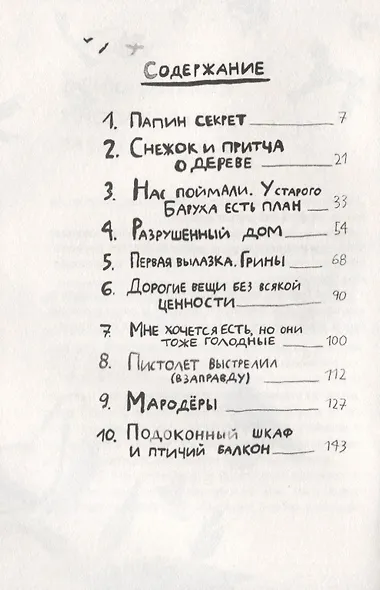 СОДЕРЖАНИЕ
1. ПАПИН СЕКРЕТ 7
2. СНЕЖОК И ПРИТЧА
О ДЕРЕВЕ 21
3. НАС ПОЙМАЛИ. У СТАРОГО
БАРУХА ЕСТЬ ПЛАН 33
4. РАЗРУШЕННЫЙ ДОМ 54
5. ПЕРВАЯ ВЫЛАЗКА. ГРИНЫ 68
6. ДОРОГИЕ ВЕЩИ БЕЗ ВСЯКОЙ
ЦЕННОСТИ 90
7. МНЕ ХОЧЕТСЯ ЕСТЬ, НО ОНИ
ТОЖЕ ГОЛОДНЫЕ 100
8. ПИСТОЛЕТ ВЫСТРЕЛИЛ
(ВЗАПРАВДУ) 112
9. МАРОДЁРЫ 127
10. ПОДОКОННЫЙ ШКАФ
И ПТИЧИЙ БАЛКОН 143